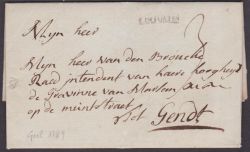 LOUVAIN
Mijn heer
Mijn heer van den Broucke
Raed intendent van haere hoogheyt
de Gravinne van
op de meirestraet
tot Gendt
1789